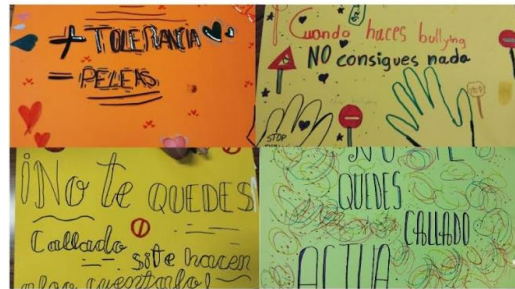 + TOLERANCIA
= PELEAS
Cuando haces bullying
NO consigues nada
STOP
¡No te QUEDES
Callado si te hacen
algo cuentarlo!
NO TE
QUEDES
CALLADO
ACTUA